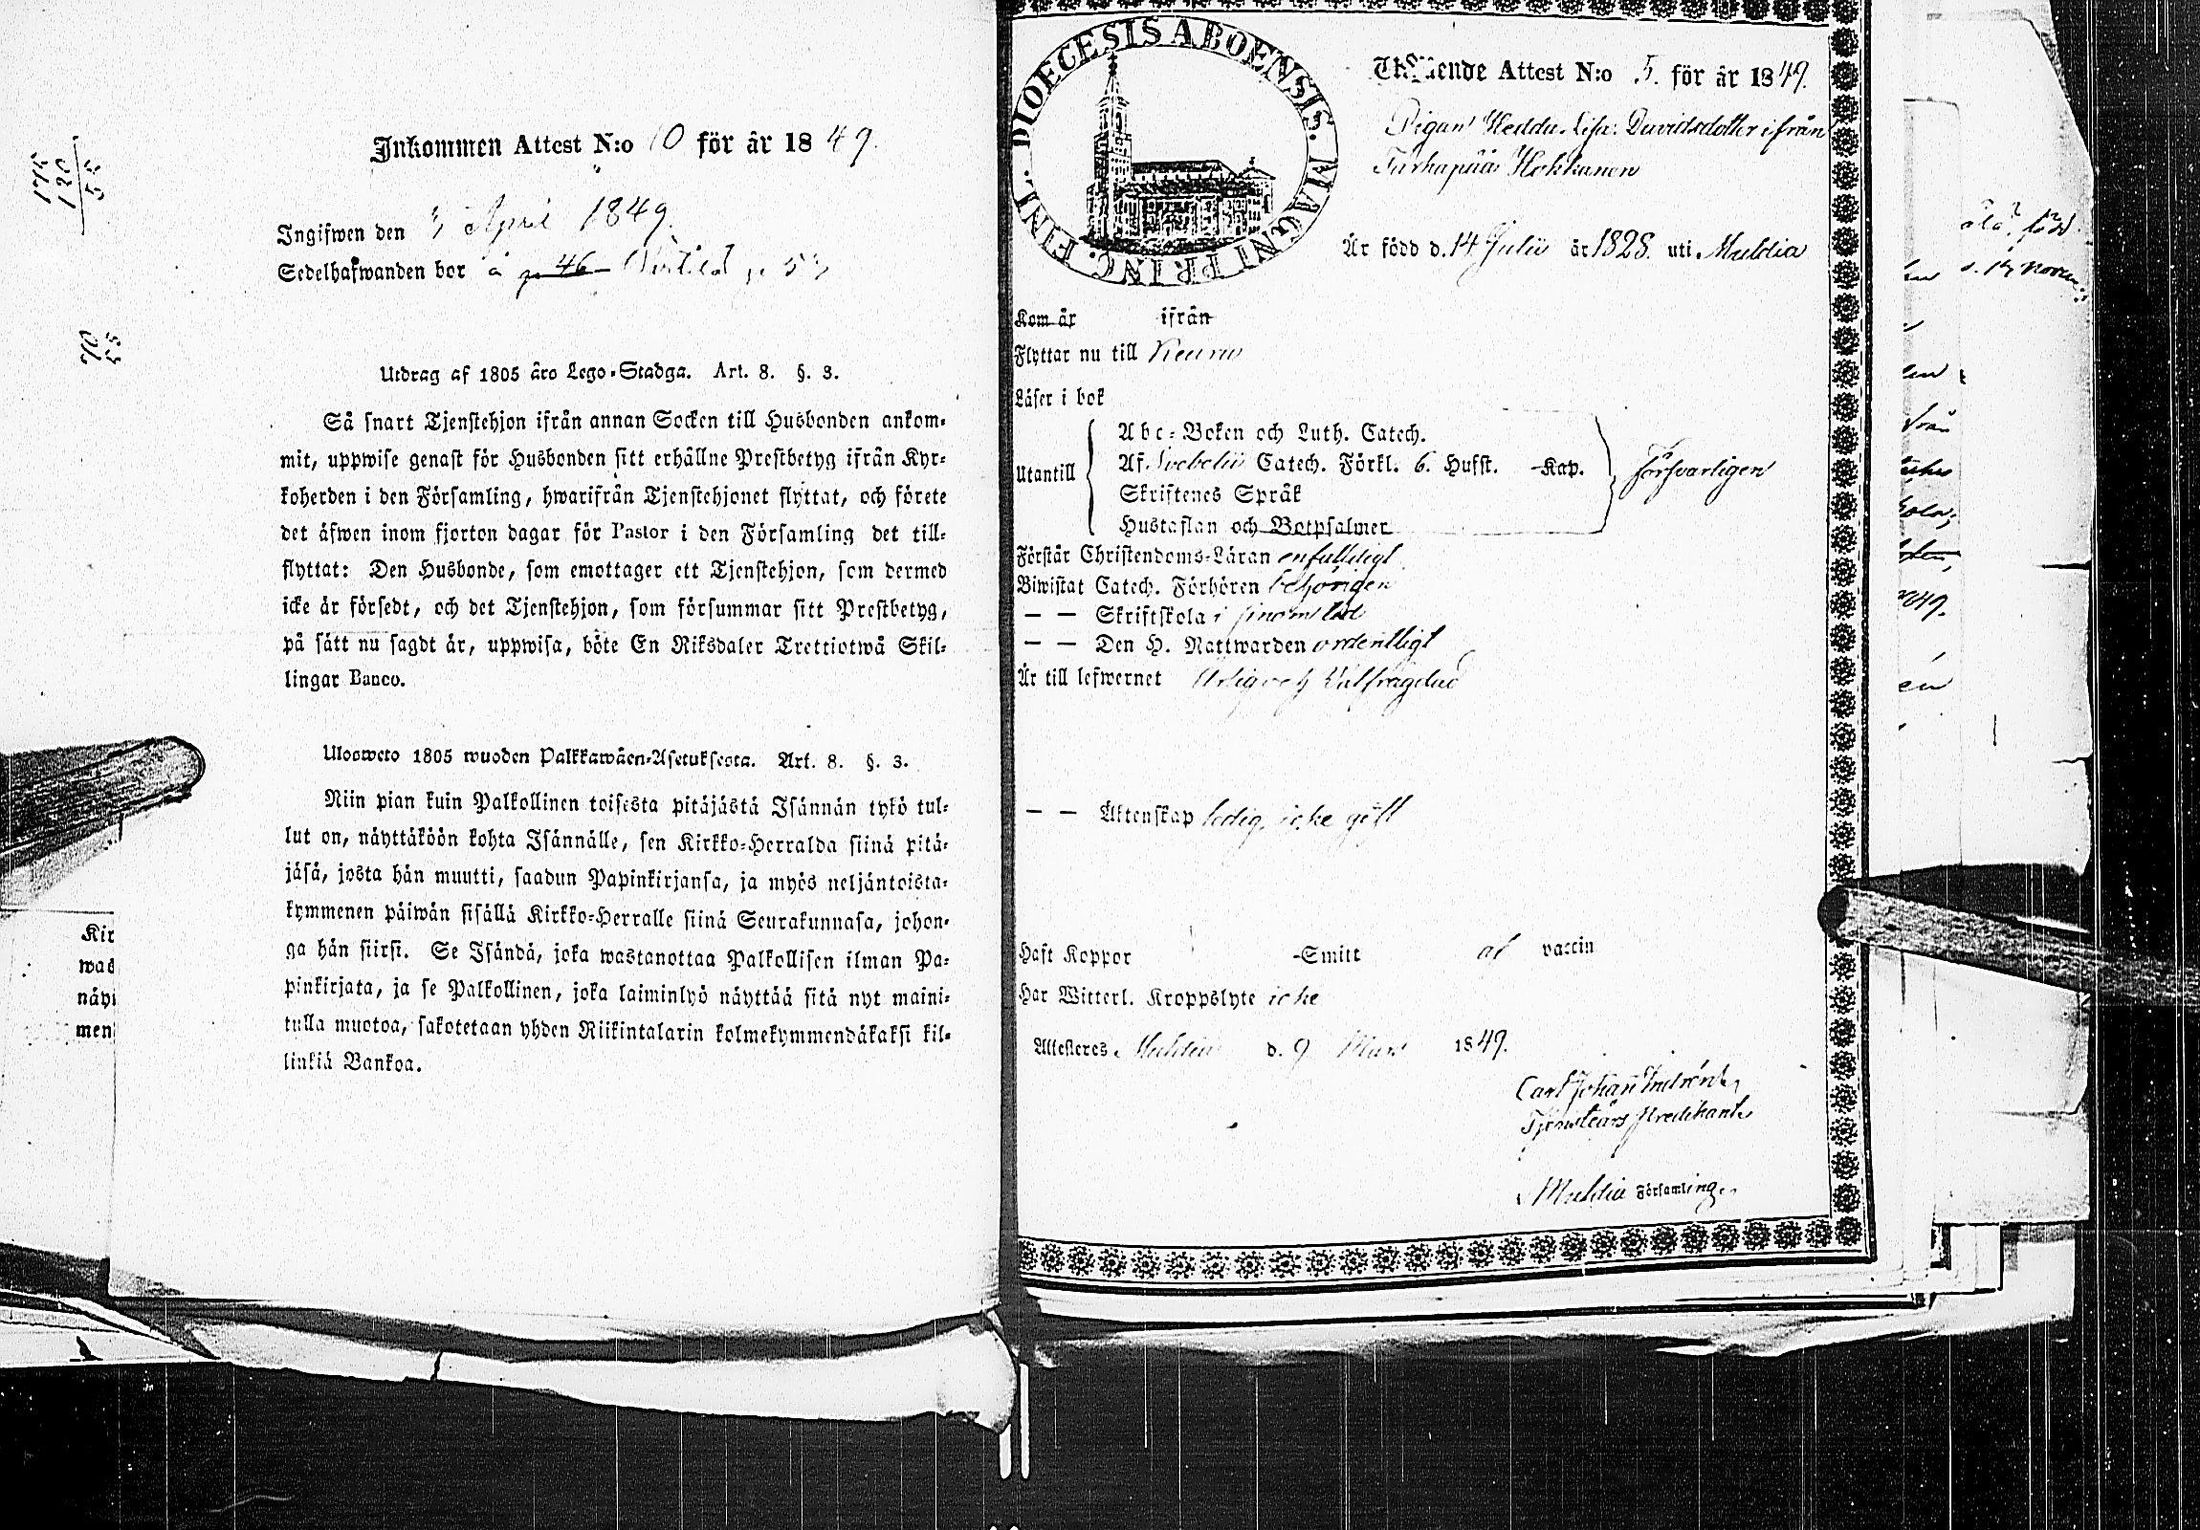 Inkommen Attest N:o 10 för år 1849.
Ingifwen den 3 April 1849.
Sedelhafwanden bor å p. 46
Utdrag af 1805 års Lego-Stadga. Art. 8. §. 3.
Så snart Tjenstehjon ifrån annan Socken till Husbonden ankom-
mit, uppwise genast för Husbonden sitt erhållne Prestbetyg ifrån Kyr-
koherden i den Församling, hwarifrån Tjenstehjonet flyttat, och förete
det äfwen inom fjorton dagar för Pastor i den Församling det till-
flyttat: Den Husbonde, som emottager ett Tjenstehjon, som dermed
icke är försedt, och det Tjenstehjon, som försummar sitt Prestbetyg,
på sätt nu sagdt är, uppwisa, böte En Riksdaler Trettiotwå Skil-
lingar Banco.
Ulosweto 1805 wuoden Palkkawäen-Asetuksesta. Art. 8. §. 3.
Niin pian kuin Palkollinen toisesta pitäjästä Isännän tykö tul-
lut on, näyttäköön kohta Isännälle, sen Kirkko-Herralda siinä pitä-
jäsä, josta hän muutti, saadun Papinkirjansa, ja myös neljäntoista-
kymmenen päiwän sisällä Kirkko-Herralle siinä Seurakunnasa, johon-
ga hän siirsi. Se Isändä, joka wastanottaa Palkollisen ilman Pa-
pinkirjata, ja se Palkollinen, joka laiminlyö näyttää sitä nyt maini-
tulla muotoa, sakotetaan yhden Riikintalarin kolmekymmendäkaksi kil-
linkiä Bankoa.
Kir
wad
näyt
men
DIOECESIS ABOENSIS. MAGNI PRINC. FINL.
Utgående Attest N:o 5. för år 1849.
Pigan Hedda Lisa Davidsdotter ifrån
Tarhapää Hokkanen
Är född d. 14 Julii år 1828. uti Muldia
Kom år ifrån
Flyttar nu till Keuru
Läser i bok
Utantill
Abc-Boken och Luth. Catech.
Af Svebelii Catech. Förkl. 6. Hufst. -Kap.
Skriftenes Språk
Hustaflan och Botpsalmer
försvarligen
Förstår Christendoms-Läran enfaldigt
Biwistat Catech. Förhören behörigen
— — Skriftskola i
— — Den H. Nattwarden ordentligt
Är till lefwernet ärlig och välfrägdad
— — Äktenskap ledig, icke gift
Haft Koppor -Smitt af vaccin
Har Witterl. Kroppslyte icke
Attesteres Muldia d. 9 Mars 1849.
Carl Johan
Tjenstgörs Predikant
Muldia Församling.